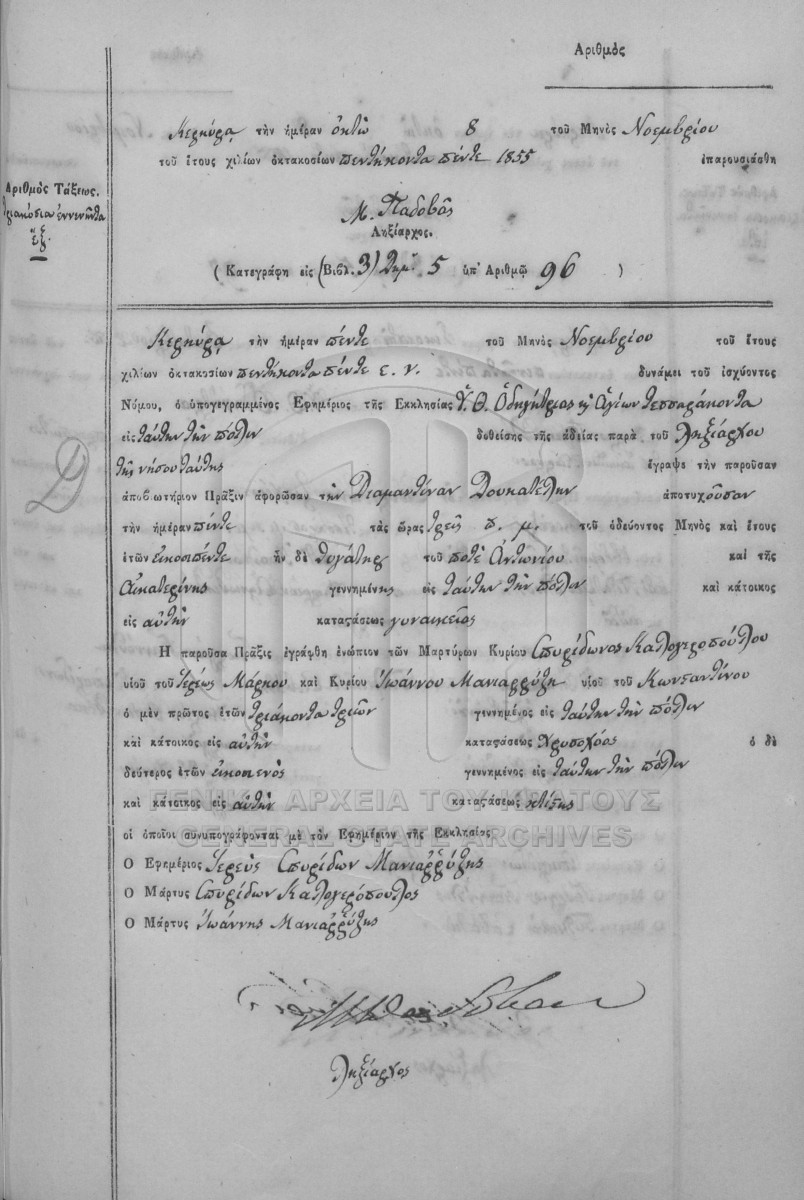 Ἀριθμός
Κερκύρᾳ τὴν ἡμέραν ὀκτὼ 8 τοῦ Μηνὸς Νοεμβρίου
τοῦ ἔτους χιλίων ὀκτακοσίων πενῆκοντα πέντε 1855 ἐπαρουσιάσθη
Ἀριθμὸς Τάξεως.
τριακόσια ἐννενῆντα
ἕξ
Μ. Παδοβᾶς
Ληξίαρχος.
( Κατεγράφη εἰς (Βιβλ. 3) 5 ὑπ' Ἀριθμῷ 96 )
Κερκύρᾳ τὴν ἡμέραν πέντε τοῦ Μηνὸς Νοεμβρίου τοῦ ἔτους
χιλίων ὀκτακοσίων πεντῆκοντα πέντε ε. ν. δυνάμει τοῦ ἰσχύοντος
Νόμου, ὁ ὑπογεγραμμένος Ἐφημέριος τῆς Ἐκκλησίας Ὑ. Θ. Ὁδηγήτριας κ Ἁγίων τεσσαράκοντα
εἰς ταύτην τὴν πόλιν δοθείσης τῆς ἀδείας παρὰ τοῦ Ληξιάρχου
τῆς νήσου ταύτης ἔγραψε τὴν παροῦσαν
ἀποβιωτήριον Πρᾶξιν ἀφορῶσαν τὴν Διαμαντίναν Δουκατέλην ἀποτυχοῦσαν
τὴν ἡμέραν πέντε τὰς ὥρας τρεῖς π. μ. τοῦ ὁδεύοντος Μηνὸς καὶ ἔτους
ἐτῶν εἰκοσιπέντε ἦν δὲ θυγάτηρ τοῦ ποτὲ Ἀντωνίου καὶ τῆς
Αἰκατερίνης γεννημένης εἰς ταύτην τὴν πόλιν καὶ κάτοικος
εἰς αὐτὴν καταςάσεως γυναικείας
Ἡ παροῦσα Πρᾶξις ἐγράφθη ἐνώπιον τῶν Μαρτύρων Κυρίου Σπυρίδωνος Καλογεροπούλου
υἱοῦ τοῦ Ἱερέως Μάρκου καὶ Κυρίου Ἰωάννου Μανιαρρύζη υἱοῦ τοῦ Κωνσαντίνου
ὁ μὲν πρῶτος ἐτῶν τριάκοντα τριῶν γεννημένος εἰς ταύτην τὴν πόλιν
καὶ κάτοικος εἰς αὐτὴν καταςάσεως Χρυσοχόος ὁ δὲ
δεύτερος ἐτῶν εἰκοσιενὸς γεννημένος εἰς ταύτην τὴν πόλιν
καὶ κάτοικος εἰς αὐτὴν καταςάσεως κτίςης
οἱ ὁποῖοι συνυπογράφονται μὲ τὸν Ἐφημέριον τῆς Ἐκκλησίας
Ὁ Ἐφημέριος Ἱερεὺς Σπυρίδων Μανιαρρύζης
Ὁ Μάρτυς Σπυρίδων Καλογερόπουλος
Ὁ Μάρτυς Ἰωάννης Μανιαρρύζης
Ληξίαρχος
ΓΕΝΙΚΑ ΑΡΧΕΙΑ ΤΟΥ ΚΡΑΤΟΥΣ
GENERAL STATE ARCHIVES